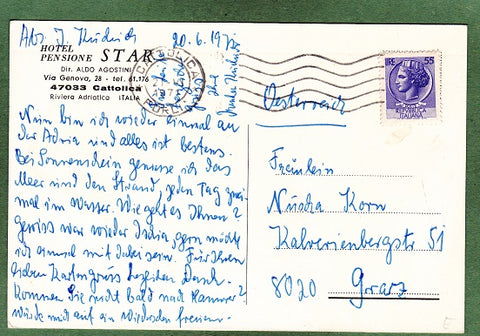 Abs. J.
20.6.19
HOTEL
PENSIONE STAR
Dir. ALDO AGOSTINI
Via Genova, 28 - tel. 61.176
47033 Cattolica
Riviera Adriatico ITALIA
CATTOLICA
LIRE 55
REPUBBLICA
ITALIANA
Nun bin ich wieder einmal an
der Adria und alles ist bestens.
Bei Sonnenschein genieße ich das
Meer und den Strand, jeden Tag zwei-
mal im Wasser. Wie geht es Ihnen?
gewiss war wieder gern möchte
ich einmal mit dabei sein. Für Ihren
lieben Kartengruss herzlichen Dank.
Kommen Sie nicht bald nach Hannover?
würde mich auf ein Wiedersehen freuen.
Oesterreich
Fräulein
Nuscha Korn
Kalvarienbergstr 51
8020 Graz